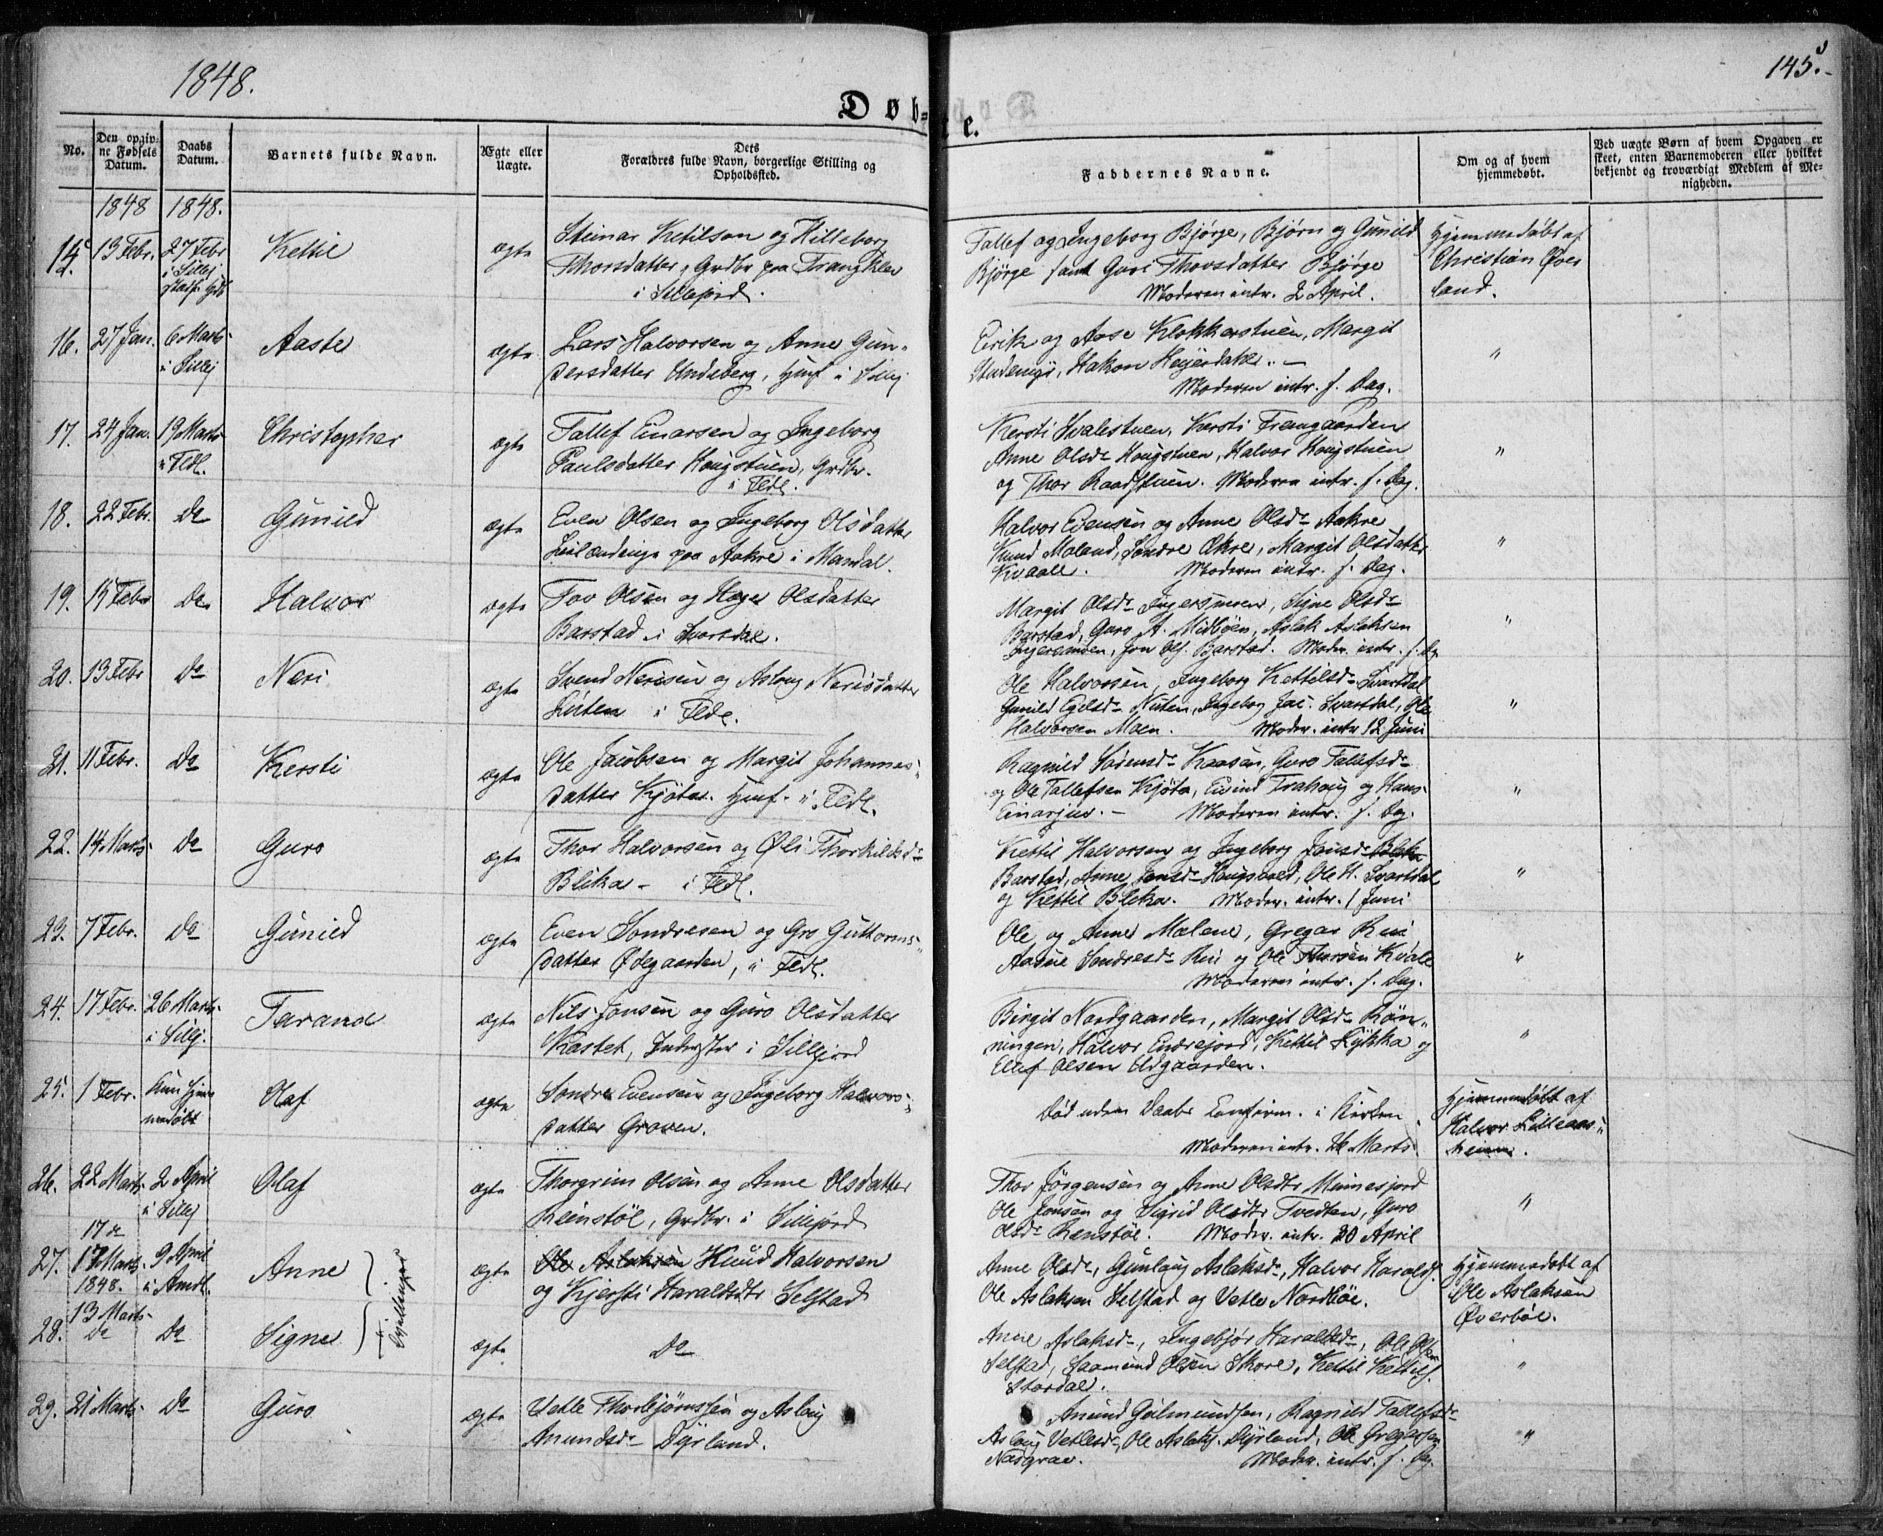 1848.
145.
Døbte.
No.
Den opgivne Fødsels Datum.
Daabs Datum.
Barnets fulde Navn.
Ægte eller Uægte.
Dets Forældres fulde Navn, borgerlige Stilling og Opholdssted.
Faddernes Navne.
Om og af hvem hjemmedøbt.
Ved uægte Børn af hvem Opgaven er skeet, enten Barnemoderen eller hvilket bekjendt og troværdigt Medlem af Menigheden.
1848 1848.
15. 13 Febr. 27 Febr i Sillej Kettil ægte
Steinar Ketilson og Hilleborg
Thorsdatter, Grdbr paa
i Sillejord.
Tallef og Ingeborg Bjørge, Bjørn og Gunild
Bjørge samt Guri Thorsdatter Bjørge
Moderen intr. 2 April.
Hjemmedøbt af
Christian Øver
land.
16. 27 Jan. 6 Marts i Sillej Aaste ægte
Lars Halvorsen og Anne Gun-
dersdatter Undeberg, Husf i Sillej
Eirik og Aase Klokkerstuen, Margit
Hakon Heyerdahl. —
Moderen intr. s. Dag.
"
17. 24 Jan. 19 Marts i Fldl. Christopher ægte
Tallef Einarsen og Ingeborg
Paulsdatter Haugstuen, Grdbr.
i Fldl.
Kersti Svalestuen, Kersti Framgaarden
Anne Olsdr Haugstuen, Halvor Haugstuen
og Thor Raadstuen. Moderen intr. s. Dag.
"
18. 22 Febr. Do Gunild ægte
Even Olsen og Ingeborg Olsdatter
Leilændinge paa Aakre i Mandal.
Halvor Evensen og Anne Olsdr Aakre
Knud Moland, Sondre Akre, Margit Olsdatter
Kvaale. Moderen intr. s. Dag.
"
19. 15 Febr Do Halvor ægte
Tov Olsen og Hæge Olsdatter
Barstad i Svartdal.
Margit Olsdr Signe Olsdr
Barstad, Guro A. Midbøen, Aslak Aslaksen
Jon Ols. Barstad. Moder. intr. s. Dg
"
20. 13 Febr Do Neri ægte
Svend Nerisen og Aslaug Nerisdatter
i Fldl.
Ole Halvorsen, Ingeborg Kettilsdr Svartdal
Gunild Egilsdr Nuten, Ingeborg Jac. Svartdal, Ole
Halvorsen Moen. Moder. intr 12 Juni
"
21. 11 Febr. Do Kersti ægte
Ole Jacobsen og Margit Johannes-
datter Kjøta. Husf. i Fldl.
Ragnild Sørensdr Kaasen, Guro Tallefsdr
og Ole Tallefsen Kjøta, Eivind Trahaug og Hans
Einarjuv. — Moderen intr. s. Dag.
"
22. 14 Marts Do Guro ægte
Thor Halvorsen og Øli Thorkildsdr
Bleka - i Fldl.
Kettil Halvorsen og Ingeborg Jonsdr Bleka
Barstad, Anne Jonsdr Ole H. Svartdal
og Kettil Bleka. Moder. intr. 1 Juni
"
23. 7 Febr. Do Gunild ægte
Even Sondresen og Gro Guttorms-
datter Ødegaarden, i Fldl.
Ole og Anne Molene, Gregar Rui
Aasne Sondresdr Rui og Ole Thorsen Kvale
Moderen intr. s. Dag.
"
24. 17 Febr. 26 Marts i Sillej. Tarand ægte
Nils Jonsen og Guro Olsdatter
Kastet, Inderster i Sillejord
Birgit Nordgaarden, Margit Olsdr Røn-
ningen, Halvor Endrejord, Kettil Rykka og
Ellef Olsen Eldgaarden.
"
25. 1 Febr. Kun hjemmedøbt Olaf ægte
Sondre Evensen og Ingeborg Halvors-
datter Groven.
Død uden Daabs Confirm. i Kirken
Moderen intr. 26 Marts
Hjemmedøbt af
Halvor Lilleaas-
heim.
26. 22 Marts 2 April i Sillej Olaf ægte
Thorgrim Olsen og Anne Olsdatter
Reinstøl, Grdbr. i Sillejord
Thor Jørgensen og Anne Olsdtr Mennesjord
Ole Jonsen og Sigrid Olsdtr Tvedten, Guro
Olsdr Reinstøl. Moder. intr. 20 April
"
27. 17de 17 Marts 1848. 9 April i Amdl. Anne Tvillinger ægte
Ole Aslaksen Knud Halvorsen
og Kjersti Haraldsdtr Selstad
Anne Olsdr, Gunlaug Aslaksdr, Halvor Harald.
Ole Aslaksen Selstad og Vetle Nordbøe.
Hjemmedøbt af
Ole Aslaksen
Øverbøe.
28. 13 Marts Do Do Signe ægte
Do
Anne Aslaksdr, Ingebjør Haraldsdr, Ole Olsen
Selstad, Saamund Olsen Skore, Kettil Kettils.
Stordal.
"
29. 21 Marts Do Guro ægte
Vetle Thorbjørnssen og Aslaug
Amundsdr Dyrland.
Amund Geilmundsen, Ragnild Tallefsdr
Aslaug Vetlesdr, Ole Aslaks. Dyrland, Ole Gregarsen
Næsgrav. Moder. intr. s. Dag.
"